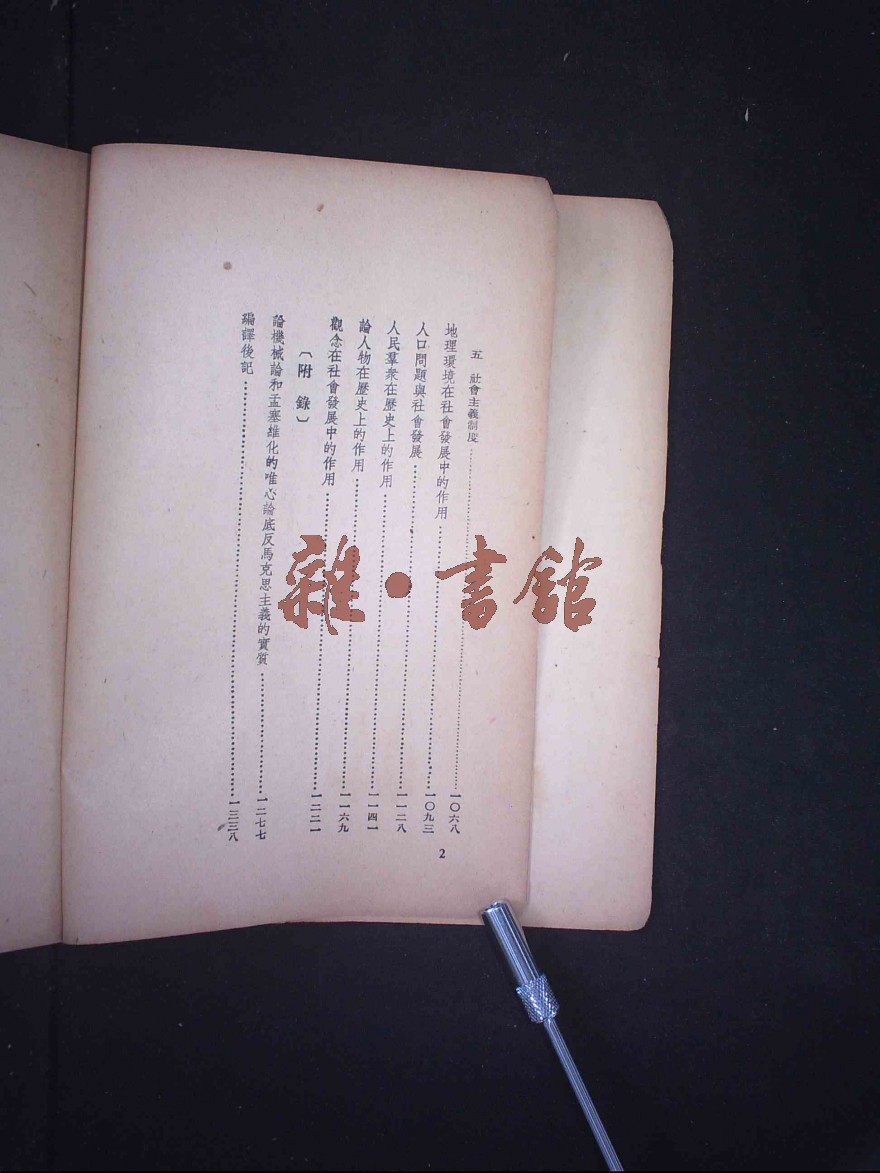 五　社會主義制度……一〇六八
地理環境在社會發展中的作用……一〇九三
人口問題與社會發展……一一二八
人民羣衆在歷史上的作用……一一四一
論人物在歷史上的作用……一一六九
觀念在社會發展中的作用……一二二一
〔附　錄〕
論機械論和孟塞維化的唯心論底反馬克思主義的實質……一二七七
編譯後記……一三三八
2
雜·書館